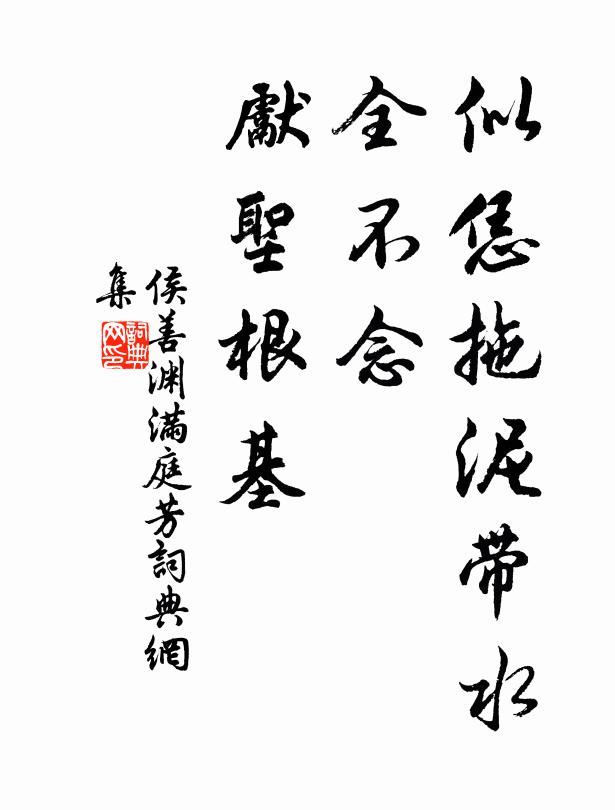 似恁拖泥带水
全不念
獻聖根基
侯善渊滿庭芳詞典網
集
詞典網印